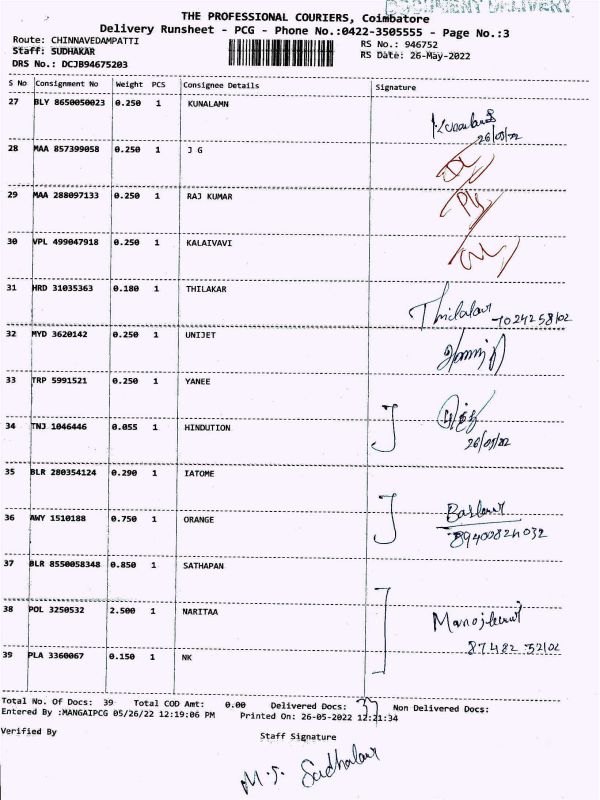 DOCUMENT DELIVERY
THE PROFESSIONAL COURIERS, Coimbatore
Delivery Runsheet - PCG - Phone No.:0422-3505555 - Page No.:3
Route: CHINNAVEDAMPATTI
RS No.: 946752
Staff: SUDHAKAR
RS Date: 26-May-2022
DRS No.: DCJB94675203
S No Consignment No Weight PCS Consignee Details Signature
27 BLY 8650050023 0.250 1 KUNALAMN
26/05/22
28 MAA 857399058 0.250 1 J G
29 MAA 288097133 0.250 1 RAJ KUMAR
30 VPL 499047918 0.250 1 KALAIVAVI
31 HRD 31035363 0.180 1 THILAKAR
32 MYD 3620142 0.250 1 UNIJET
33 TRP 5991521 0.250 1 YANEE
34 TNJ 1046446 0.055 1 HINDUTION
26/05/22
35 BLR 280354124 0.290 1 IATOME
36 AWY 1510188 0.750 1 ORANGE
37 BLR 8550058348 0.850 1 SATHAPAN
38 POL 3250532 2.500 1 NARITAA
39 PLA 3360067 0.150 1 NK
Total No. Of Docs: 39 Total COD Amt: 0.00 Delivered Docs: Non Delivered Docs:
Entered By :MANGAIPCG 05/26/22 12:19:06 PM Printed On: 26-05-2022 12:21:34
Verified By
Staff Signature